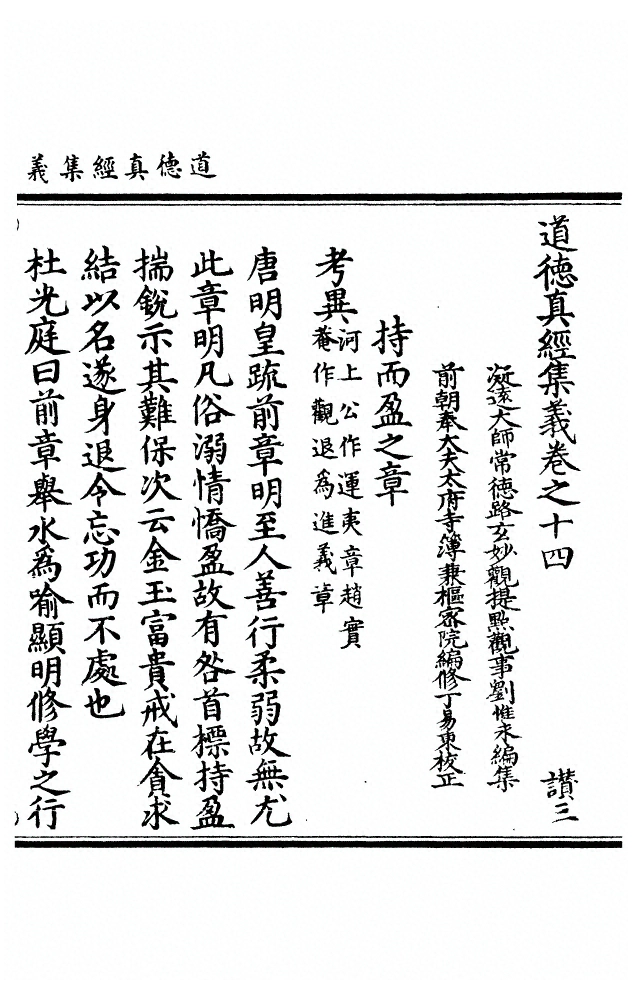 道德真經集義
道德真經集義卷之十四　讃三
凝遠大師常德路玄妙觀提點觀事劉惟永編集
前朝奉大夫太府寺簿兼樞密院編修丁易東校正
持而盈之章
考異河上公作運夷章趙實
菴作觀退為進義章
唐明皇䟽前章明至人善行柔弱故無尤
此章明凡俗溺情憍盈故有咎首摽持盈
揣銳示其難保次云金玉富貴戒在貪求
結以名遂身退令忘功而不處也
杜光庭曰前章舉水為喻顯明修學之行